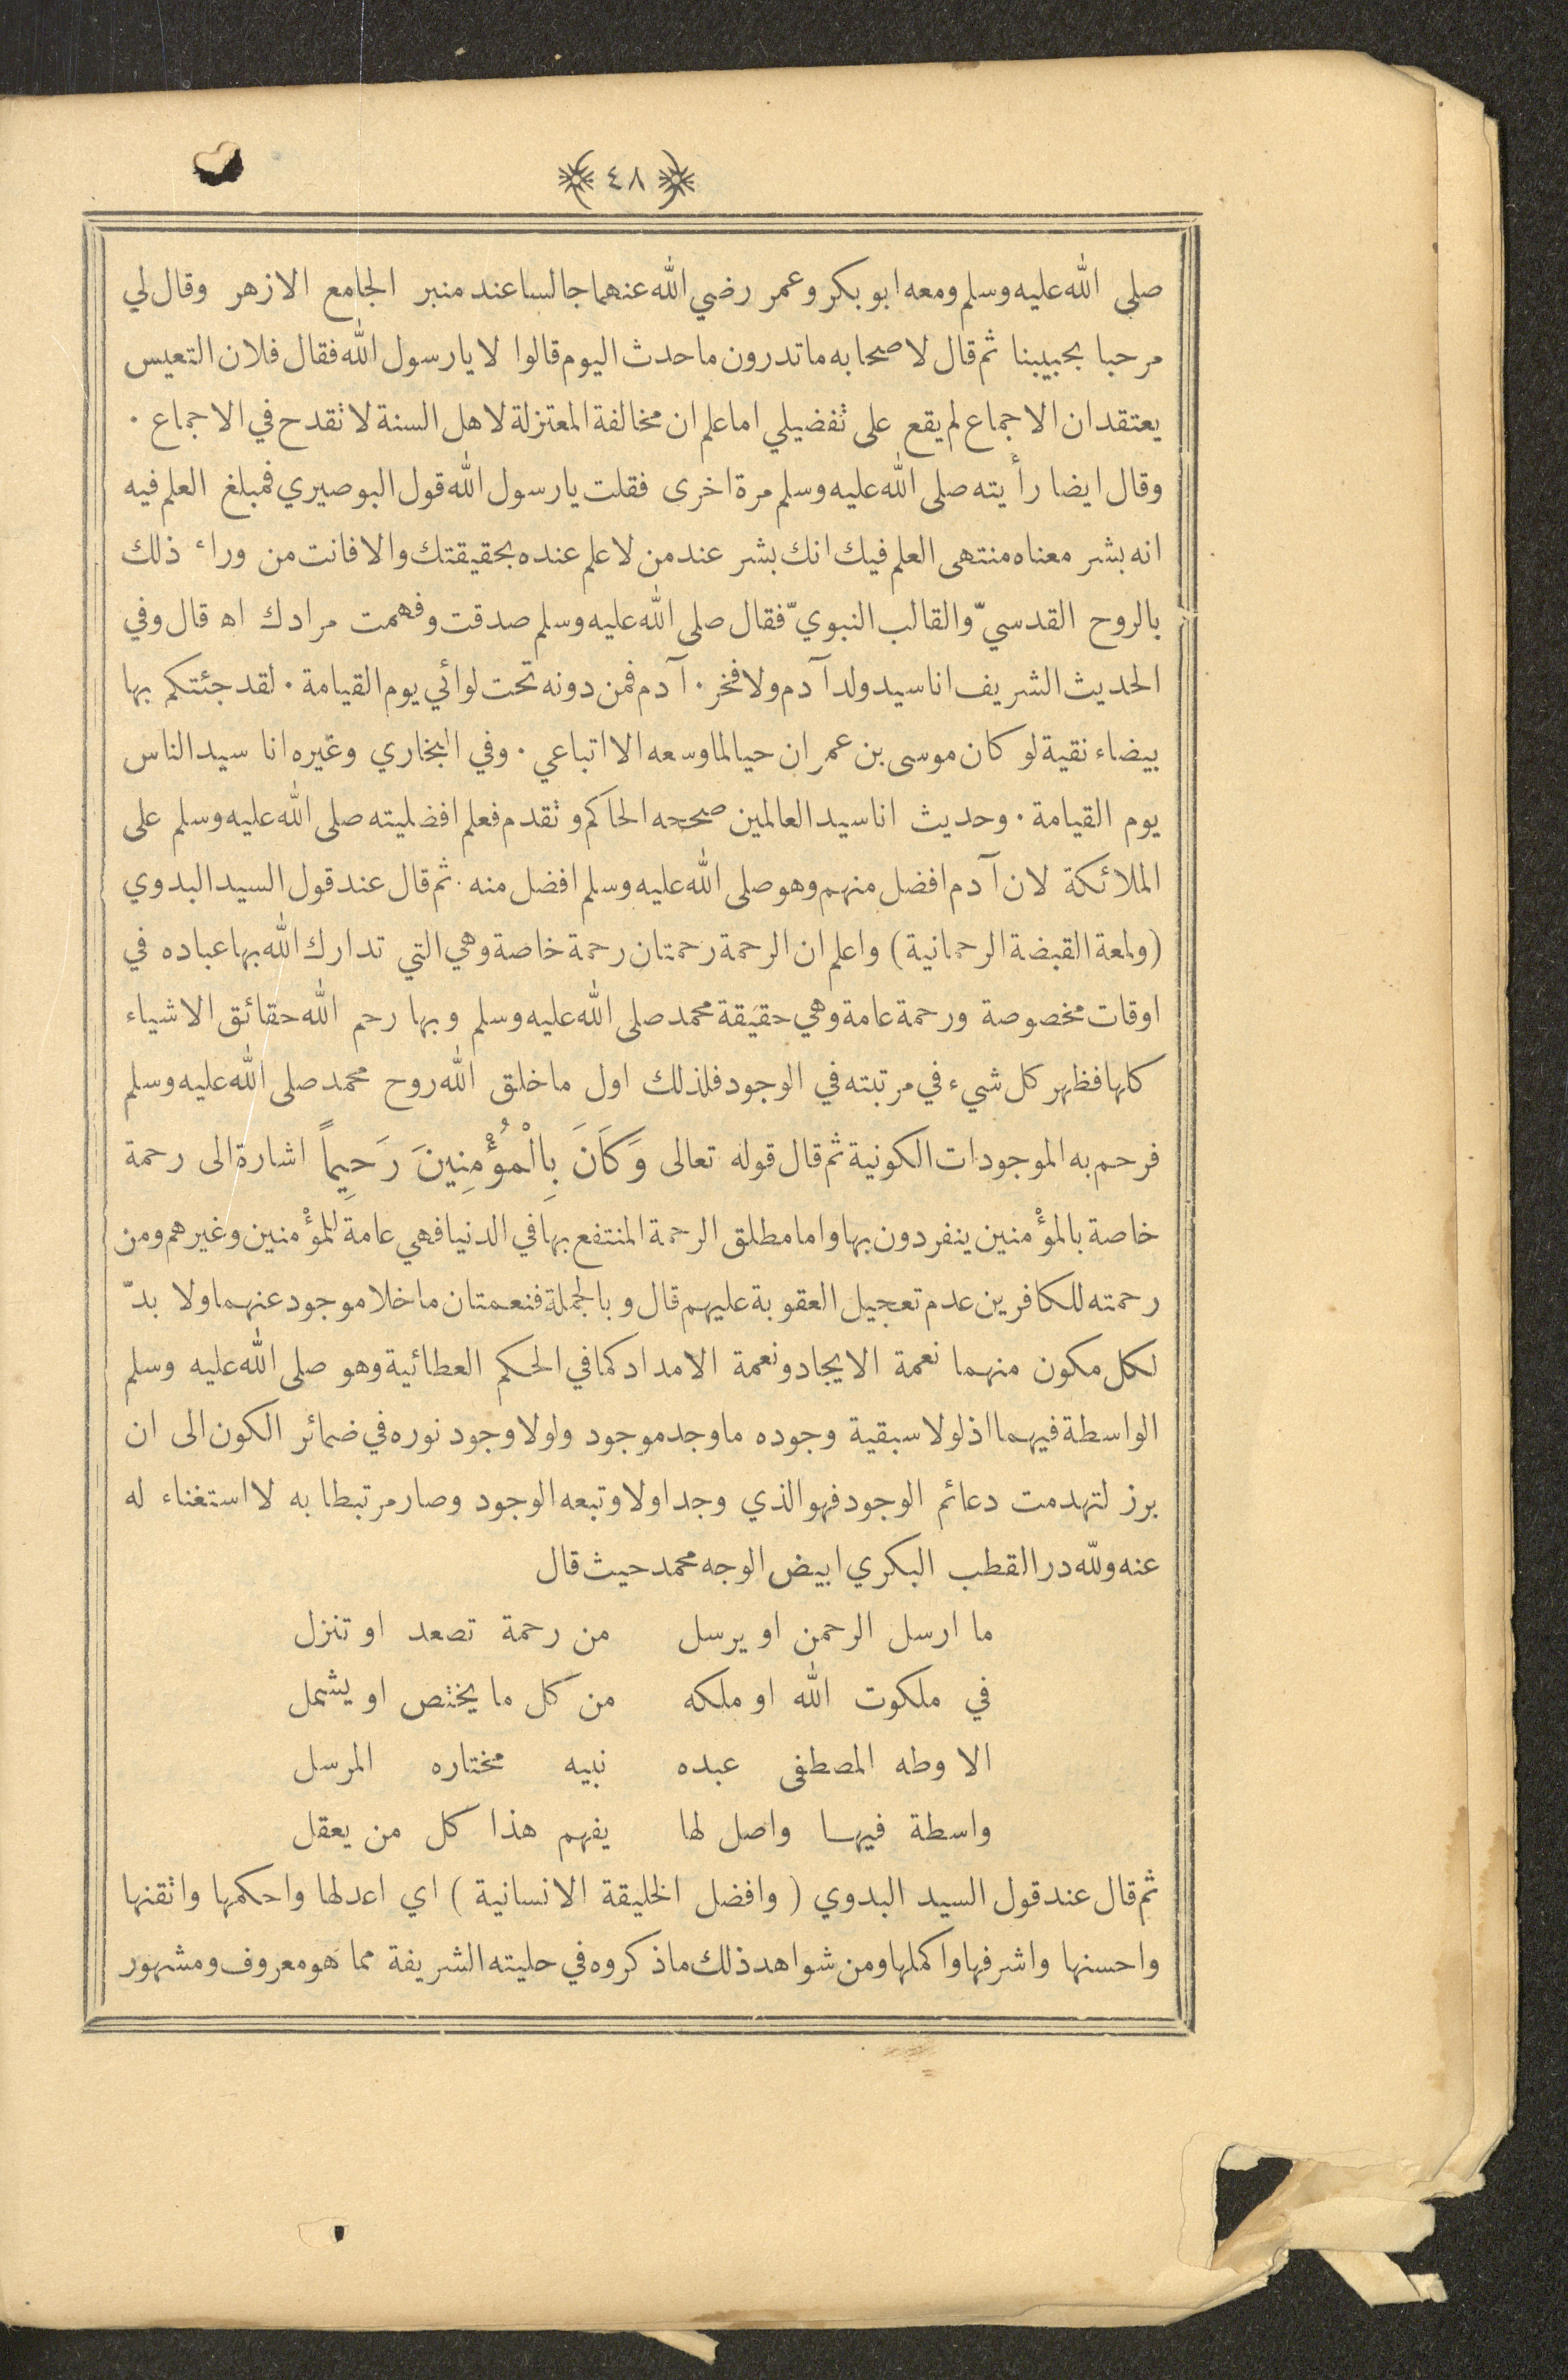 ﴿٤٨﴾
صلى الله عليه وسلم ومعه ابو بكر وعمر رضي الله عنهما جالسا عند منبر الجامع الازهر وقال لي
مرحبا بحبيبنا ثم قال لاصحابه ما تدرون ما حدث اليوم قالوا لا يا رسول الله فقال فلان التعيس
يعتقد ان الاجماع لم يقع على تفضيلي اما علم ان مخالفة المعتزلة لاهل السنة لا تقدح في الاجماع ٠
وقال ايضا رأيته صلى الله عليه وسلم مرة اخرى فقلت يا رسول الله قول البوصيري فمبلغ العلم فيه
انه بشر معناه منتهى العلم فيك انك بشر عند من لا علم عنده بحقيقتك والا فانت من وراء ذلك
بالروح القدسيّ والقالب النبويّ فقال صلى الله عليه وسلم صدقت وفهمت مرادك اه قال وفي
الحديث الشريف انا سيد ولد آدم ولا فخر ٠ آدم فمن دونه تحت لوائي يوم القيامة ٠ لقد جئتكم بها
بيضاء نقية لو كان موسى بن عمران حيا لما وسعه الا اتباعي ٠ وفي البخاري وغيره انا سيد الناس
يوم القيامة ٠ وحديث انا سيد العالمين صححه الحاكم وتقدم فعلم افضليته صلى الله عليه وسلم على
الملائكة لان آدم افضل منهم وهو صلى الله عليه وسلم افضل منه ٠ ثم قال عند قول السيد البدوي
(ولمعة القبضة الرحمانية) واعلم ان الرحمة رحمتان رحمة خاصة وهي التي تدارك الله بها عباده في
اوقات مخصوصة ورحمة عامة وهي حقيقة محمد صلى الله عليه وسلم وبها رحم الله حقائق الاشياء
كلها فظهر كل شيء في مرتبته في الوجود فلذلك اول ما خلق الله روح محمد صلى الله عليه وسلم
فرحم به الموجودات الكونية ثم قال قوله تعالى وَكَانَ بِالْمُؤْمِنِينَ رَحِيماً اشارة الى رحمة
خاصة بالمؤْمنين ينفردون بها واما مطلق الرحمة المنتفع بها في الدنيا فهي عامة للمؤْمنين وغيرهم ومن
رحمته للكافرين عدم تعجيل العقوبة عليهم قال وبالجملة فنعمتان ما خلا موجود عنهما ولا بدّ
لكل مكون منهما نعمة الايجاد ونعمة الامداد كما في الحكم العطائية وهو صلى الله عليه وسلم
الواسطة فيهما اذ لولا سبقية وجوده ما وجد موجود ولولا وجود نوره في ضمائر الكون الى ان
برز لتهدمت دعائم الوجود فهو الذي وجد اولا وتبعه الوجود وصار مرتبطا به لا استغناء له
عنه ولله در القطب البكري ابيض الوجه محمد حيث قال
ما ارسل الرحمن او يرسل من رحمة تصعد او تنزل
في ملكوت الله او ملكه من كل ما يختص او يشمل
الا وطه المصطفى عبده نبيه مختاره المرسل
واسطة فيها واصل لها يفهم هذا كل من يعقل
ثم قال عند قول السيد البدوي ( وافضل الخليقة الانسانية ) اي اعدلها واحكمها واتقنها
واحسنها واشرفها واكملها ومن شواهد ذلك ما ذكروه في حليته الشريفة مما هو معروف ومشهور